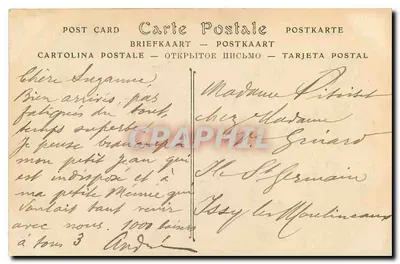 POST CARD Carte Postale POSTKARTE
BRIEFKAART — POSTKAART
CARTOLINA POSTALE — ОТКРЫТОЕ ПИСЬМО — TARJETA POSTAL
Chère Suzanne
Bien arrivés, pas
fatigués du tout,
temps superbe.
Je pense beaucoup
mon petit Jean qui
est indisposé et à
ma petite Mémée qui
voulait tant venir
avec nous. 1000 baisers
à tous 3 André
Madame
chez Madame
Guiard
Ile St Germain
Issy les Moulineaux
CPARAMA